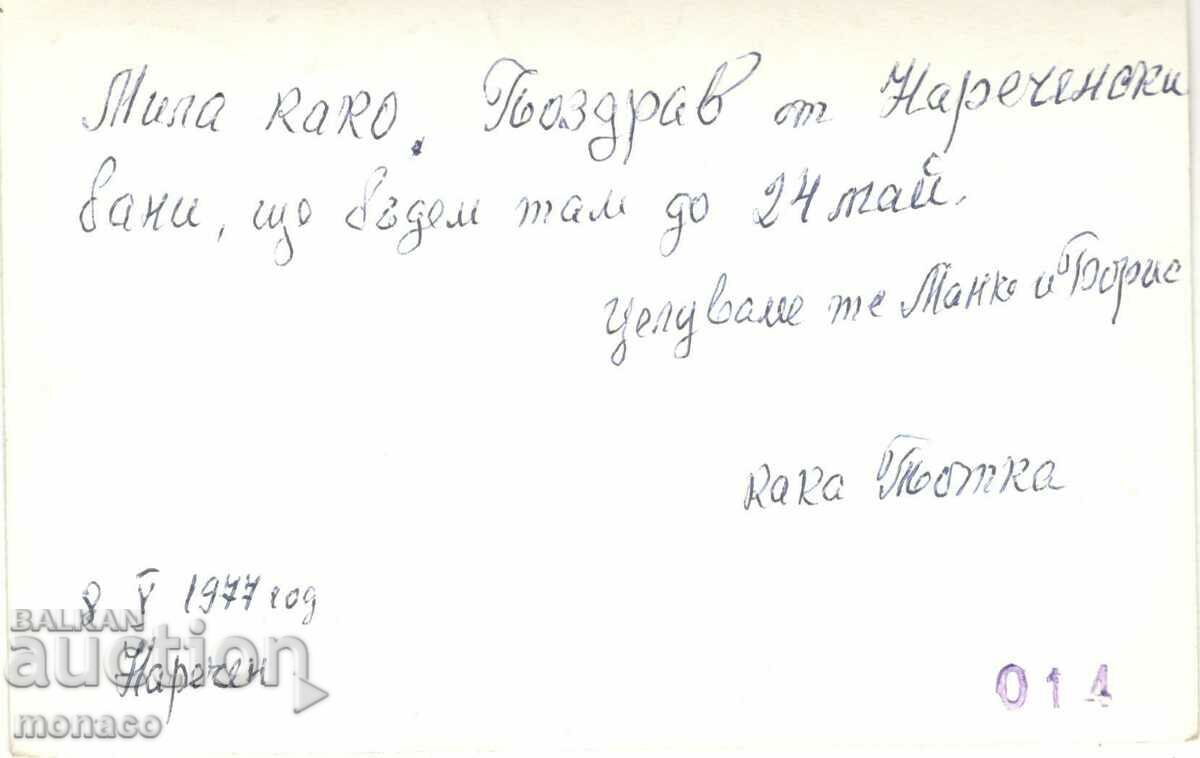 Мила како. Поздрав от Нареченски
бани, ще бъдем там до 24 май.
Целуваме те Манко и Борис
кака Тотка
8 V 1977 год
Наречен
014
BALKAN
auction
monaco